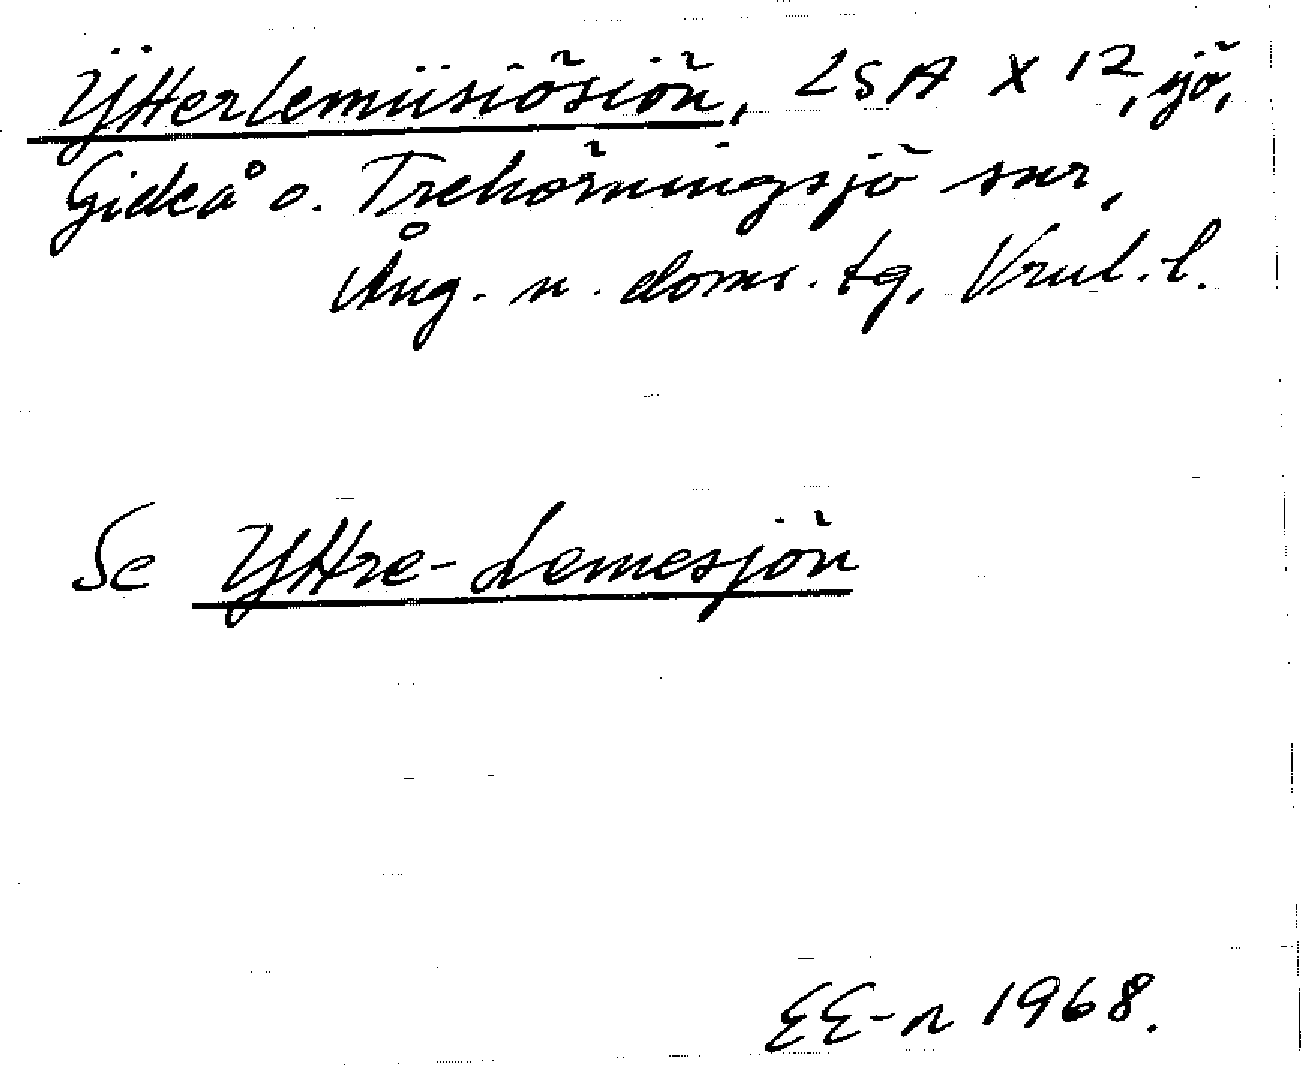 Ÿtterlemiisiösiön, LSA X 12, sjö,
Gideå o. Trehörningsjö snr,
Ång. n. doms. tg, Vrul. l.
Se Yttre-Lemesjön
EE-n 1968.